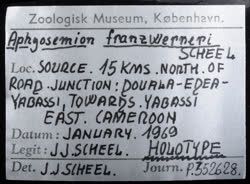 Zoologisk Museum, København.
Aphyosemion franzwerneri
SCHEEL
Loc. SOURCE. 15 KMS. NORTH. OF
ROAD JUNCTION: DOUALA-EDEA-
YABASSI, TOWARDS. YABASSI
EAST. CAMEROON
Datum: JANUARY. 1969
Legit: J.J. SCHEEL. HOLOTYPE
Det. J.J. SCHEEL Journ. P.352628.